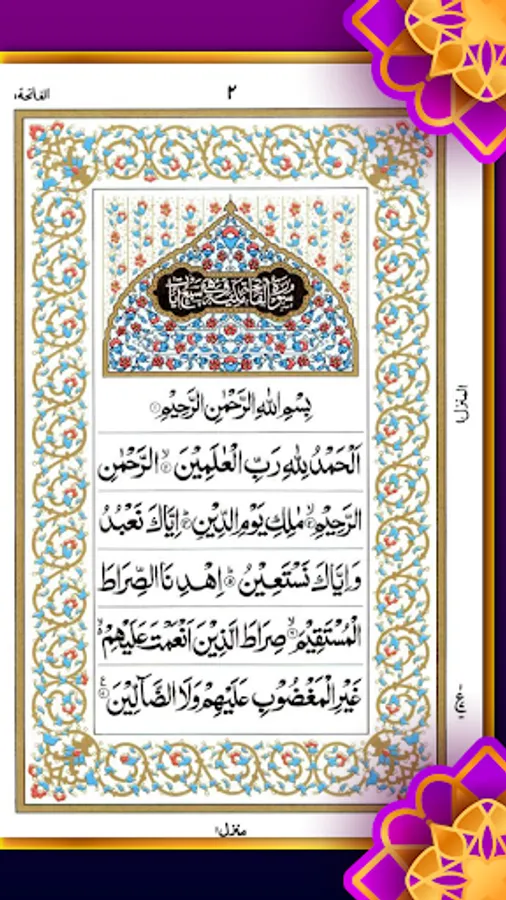 الفاتحة ١
٢
سورة الفاتحة مكية وهي سبع آيات
بِسْمِ اللهِ الرَّحْمٰنِ الرَّحِيْمِ ۝١
اَلْحَمْدُ لِلّٰهِ رَبِّ الْعٰلَمِيْنَ ۙ۝٢ الرَّحْمٰنِ
الرَّحِيْمِ ۙ۝٣ مٰلِكِ يَوْمِ الدِّيْنِ ۝٤ اِيَّاكَ نَعْبُدُ
وَاِيَّاكَ نَسْتَعِيْنُ ۝٥ اِهْدِنَا الصِّرَاطَ
الْمُسْتَقِيْمَ ۙ۝٦ صِرَاطَ الَّذِيْنَ اَنْعَمْتَ عَلَيْهِمْ ۙ
غَيْرِ الْمَغْضُوْبِ عَلَيْهِمْ وَلَا الضَّآلِّيْنَ ۝٧ ع
المنزل ١
منزل ١